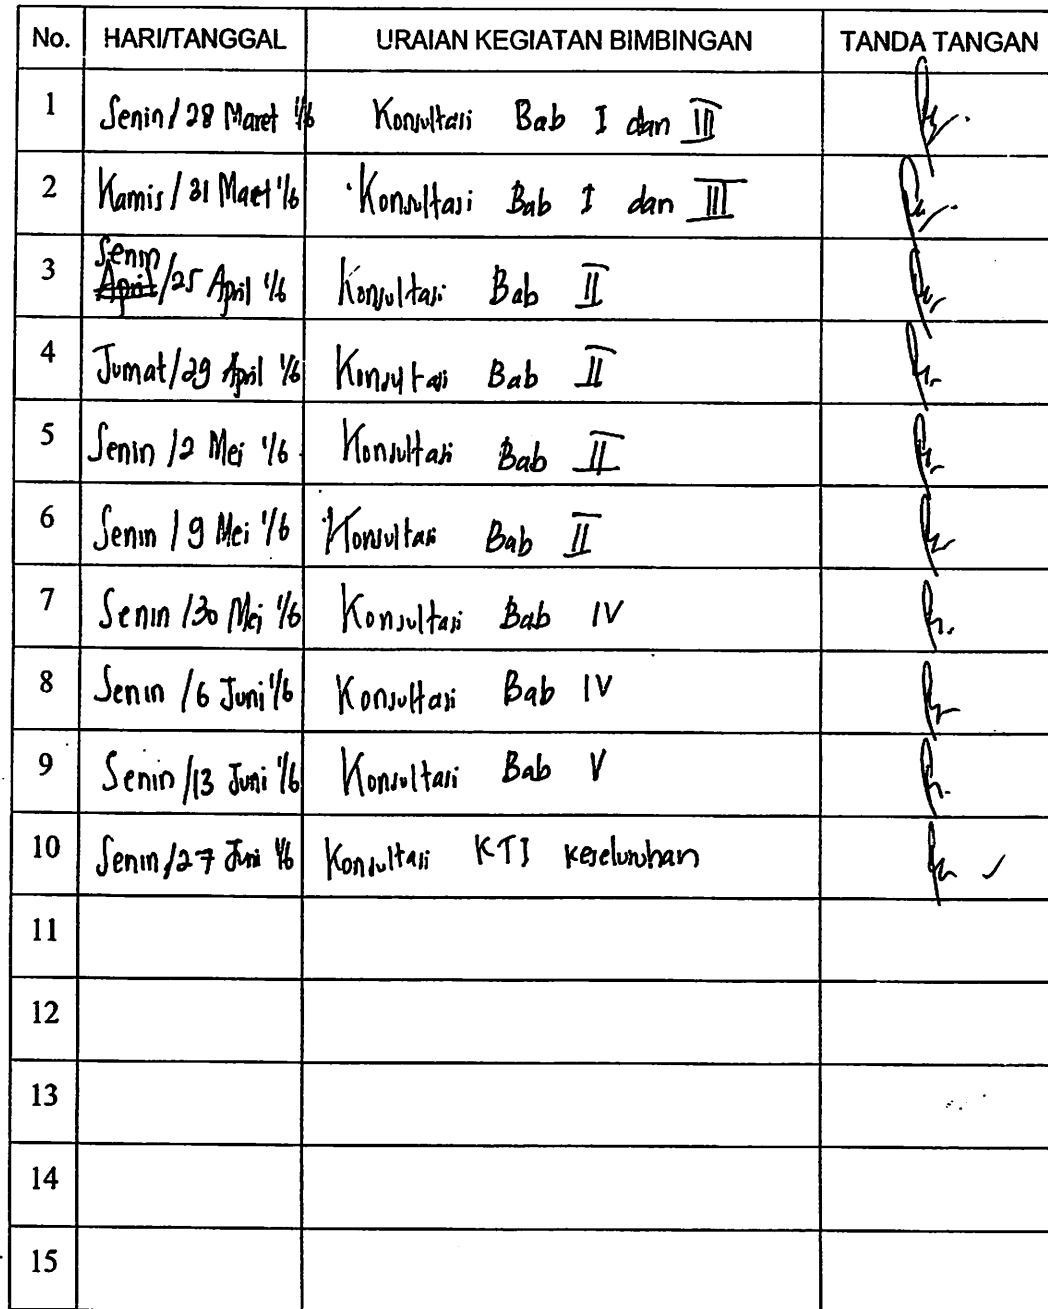 No. HARI/TANGGAL URAIAN KEGIATAN BIMBINGAN TANDA TANGAN
1 Senin / 28 Maret '16 Konsultasi Bab I dan III
2 Kamis / 31 Maret '16 Konsultasi Bab I dan III
Senin
3 April / 25 April '16 Konsultasi Bab II
4 Jumat / 29 April '16 Konsultasi Bab II
5 Senin / 2 Mei '16 Konsultasi Bab II
6 Senin / 9 Mei '16 Konsultasi Bab II
7 Senin / 30 Mei '16 Konsultasi Bab IV
8 Senin / 6 Juni '16 Konsultasi Bab IV
9 Senin / 13 Juni '16 Konsultasi Bab V
10 Senin / 27 Juni '16 Konsultasi KTI Keseluruhan
11
12
13
14
15